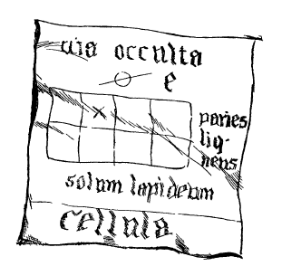 via occulta
e
x
paries
lig-
neus
solum lapideum
cellula